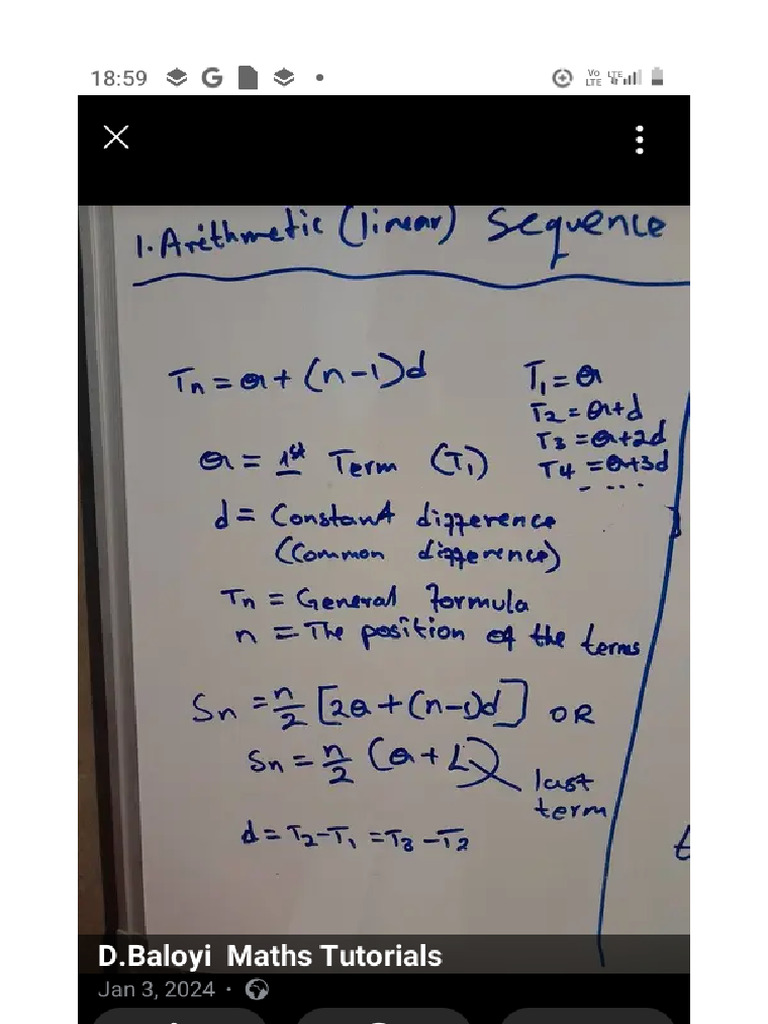 18:59
Vo LTE LTE
1. Arithmetic (linear) Sequence
Tn = a + (n-1)d
T1 = a
T2 = a+d
T3 = a+2d
T4 = a+3d
....
a = 1st Term (T1)
d = Constant difference
(Common difference)
Tn = General formula
n = The position of the terms
Sn = n/2 [2a + (n-1)d] OR
Sn = n/2 (a + L)
last
term
d = T2 - T1 = T3 - T2
D.Baloyi Maths Tutorials
Jan 3, 2024 ·